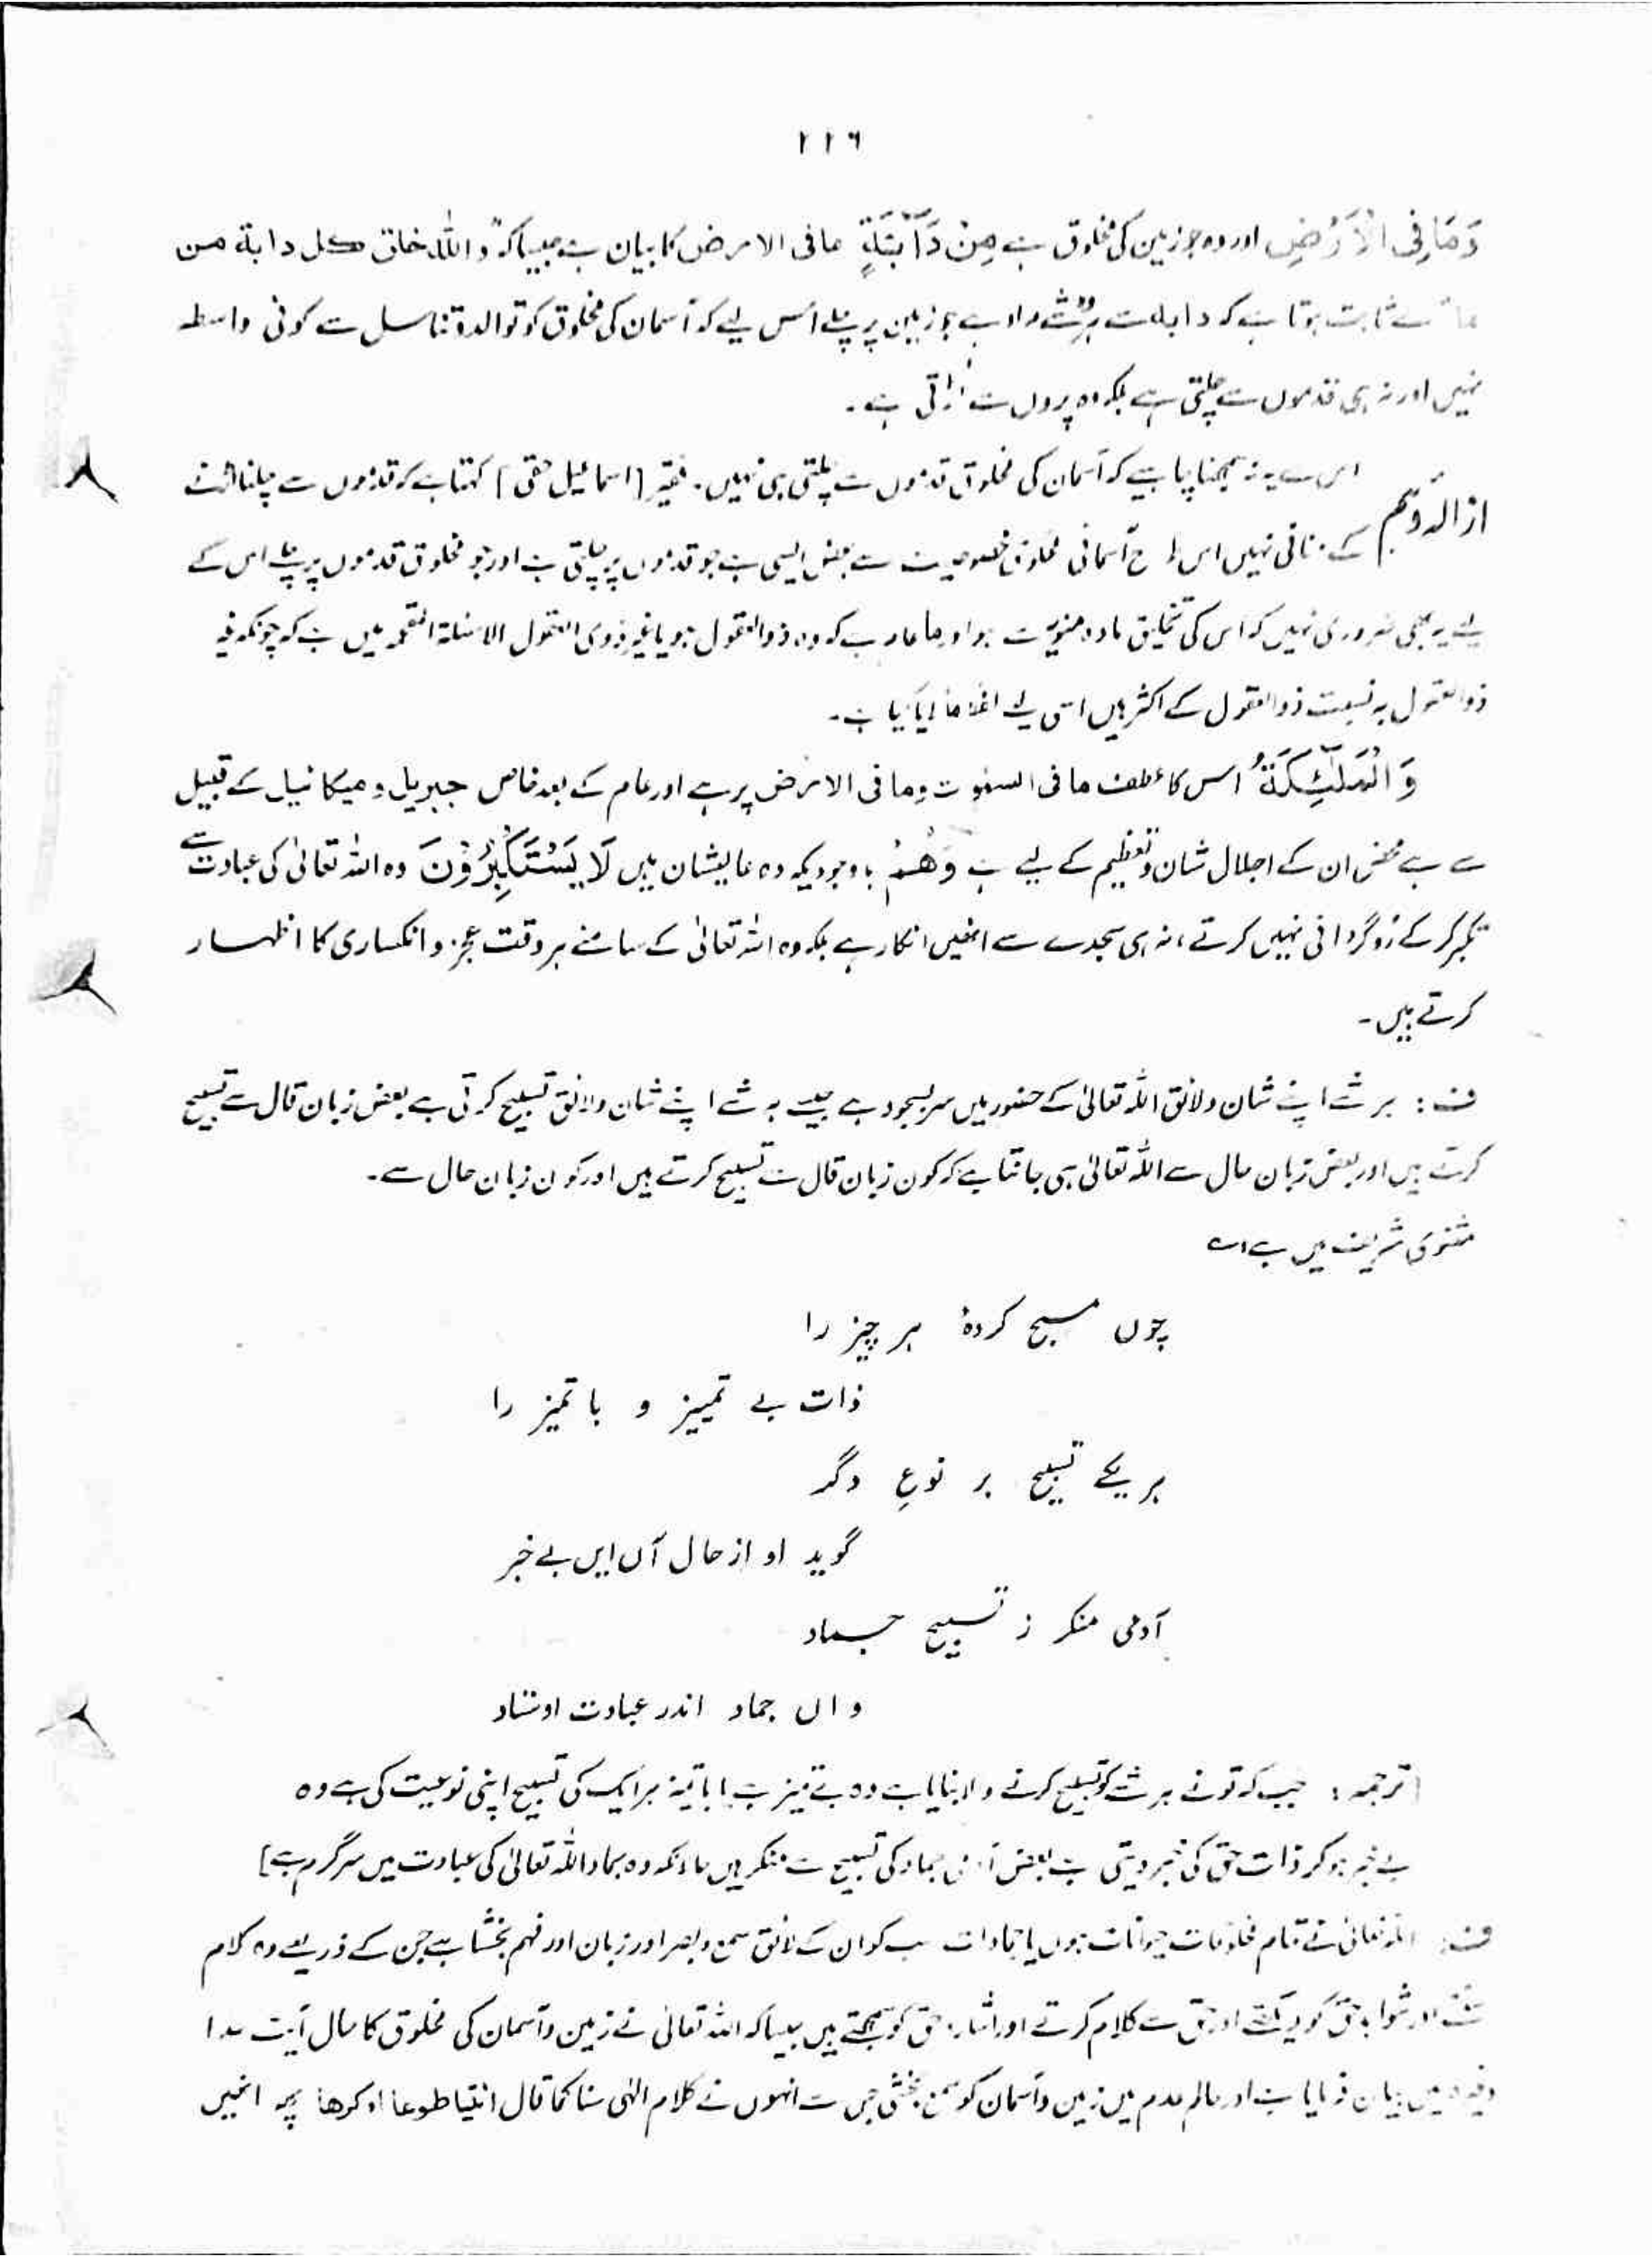 ۱۱۶
وَمَا فِی الْاَرْضِ اور وہ جو زمین کی مخلوق ہے مِنْ دَآبَّةٍ مافی الارض کا بیان ہے جیسا کہ واللہ خلق کل دابة من
ماء سے ثابت ہوتا ہے کہ دابہ سے ہر وہ شے مراد ہے جو زمین پر چلے اس لیے کہ آسمان کی مخلوق کو توالد و تناسل سے کوئی واسطہ
نہیں اور نہ ہی قدموں سے چلتی ہے بلکہ وہ پروں سے اڑتی ہے۔
اس سے یہ نہ سمجھنا چاہیے کہ آسمان کی مخلوق قدموں سے چلتی ہی نہیں۔ فقیر [اسماعیل حقی] کہتا ہے کہ قدموں سے چلنا اڑنے
ازالہ وہم کے منافی نہیں اس طرح آسمانی مخلوق خصوصیت سے بعض ایسی ہے جو قدموں پر چلتی ہے اور جو مخلوق قدموں پر چلے اس کے
لیے یہ بھی ضروری نہیں کہ اس کی تخلیق مادہ منویہ سے ہو اور ما عام ہے کہ وہ ذوالعقول ہو یا غیر ذوی العقول الاسئلة المقحمہ میں ہے کہ چونکہ غیر
ذوالعقول بہ نسبت ذوالعقول کے اکثر ہیں اسی لیے لفظ ما لایا گیا ہے۔
وَالْمَلٰٓئِکَةُ اس کا عطف ما فی السمٰوٰت وما فی الارض پر ہے اور عام کے بعد خاص جبریل و میکائیل کے قبیل
سے ہے محض ان کے اجلال شان و تعظیم کے لیے ہے وَهُمْ باوجودیکہ وہ عالیشان ہیں لَا یَسْتَکْبِرُوْنَ وہ اللہ تعالیٰ کی عبادت سے
تکبر کر کے روگردانی نہیں کرتے، نہ ہی سجدے سے انھیں انکار ہے بلکہ وہ اللہ تعالیٰ کے سامنے ہر وقت عجز و انکساری کا اظہار
کرتے ہیں۔
ف: ہر شے اپنے شان و لائق اللہ تعالیٰ کے حضور میں سربسجود ہے جیسے ہر شے اپنے شان و لائق تسبیح کرتی ہے بعض زبان قال سے تسبیح
کرتے ہیں اور بعض زبان حال سے اللہ تعالیٰ ہی جانتا ہے کہ کون زبان قال سے تسبیح کرتے ہیں اور کون زبان حال سے۔
مثنوی شریف میں ہے ؎
چوں مسبح کردۂ ہر چیز را
ذات بے تمییز و با تمیز را
ہر یکے تسبیح بر نوعِ دگر
گوید او از حال آں ایں بے خبر
آدمی منکر ز تسبیح جماد
واں جماد اندر عبادت اوستاد
[ترجمہ: جب کہ تو نے ہر شے کو تسبیح کرنے والا بنایا ہے وہ بے تمیز ہے یا باتمیز ہر ایک کی تسبیح اپنی نوعیت کی ہے وہ
بے خبر ہو کر ذات حق کی خبر دیتی ہے بعض آدمی جماد کی تسبیح سے منکر ہیں حالانکہ وہ جماد اللہ تعالیٰ کی عبادت میں سرگرم ہے]
ف: اللہ تعالیٰ نے تمام مخلوقات حیوانات ہوں یا جمادات سب کو ان کے لائق سمع و بصر اور زبان اور فہم بخشا ہے جن کے ذریعے وہ کلام
سنتے اور شواہد حق کو دیکھتے اور حق سے کلام کرتے اور اشارہ حق کو سمجھتے ہیں جیسا کہ اللہ تعالیٰ نے زمین و آسمان کی مخلوق کا حال آیت ہذا
وغیرہ میں بیان فرمایا ہے اور عالم عدم میں زمین و آسمان کو سمع بخشی جس سے انہوں نے کلام الٰہی سنا کما قال ائتیا طوعا او کرھا پھر انھیں